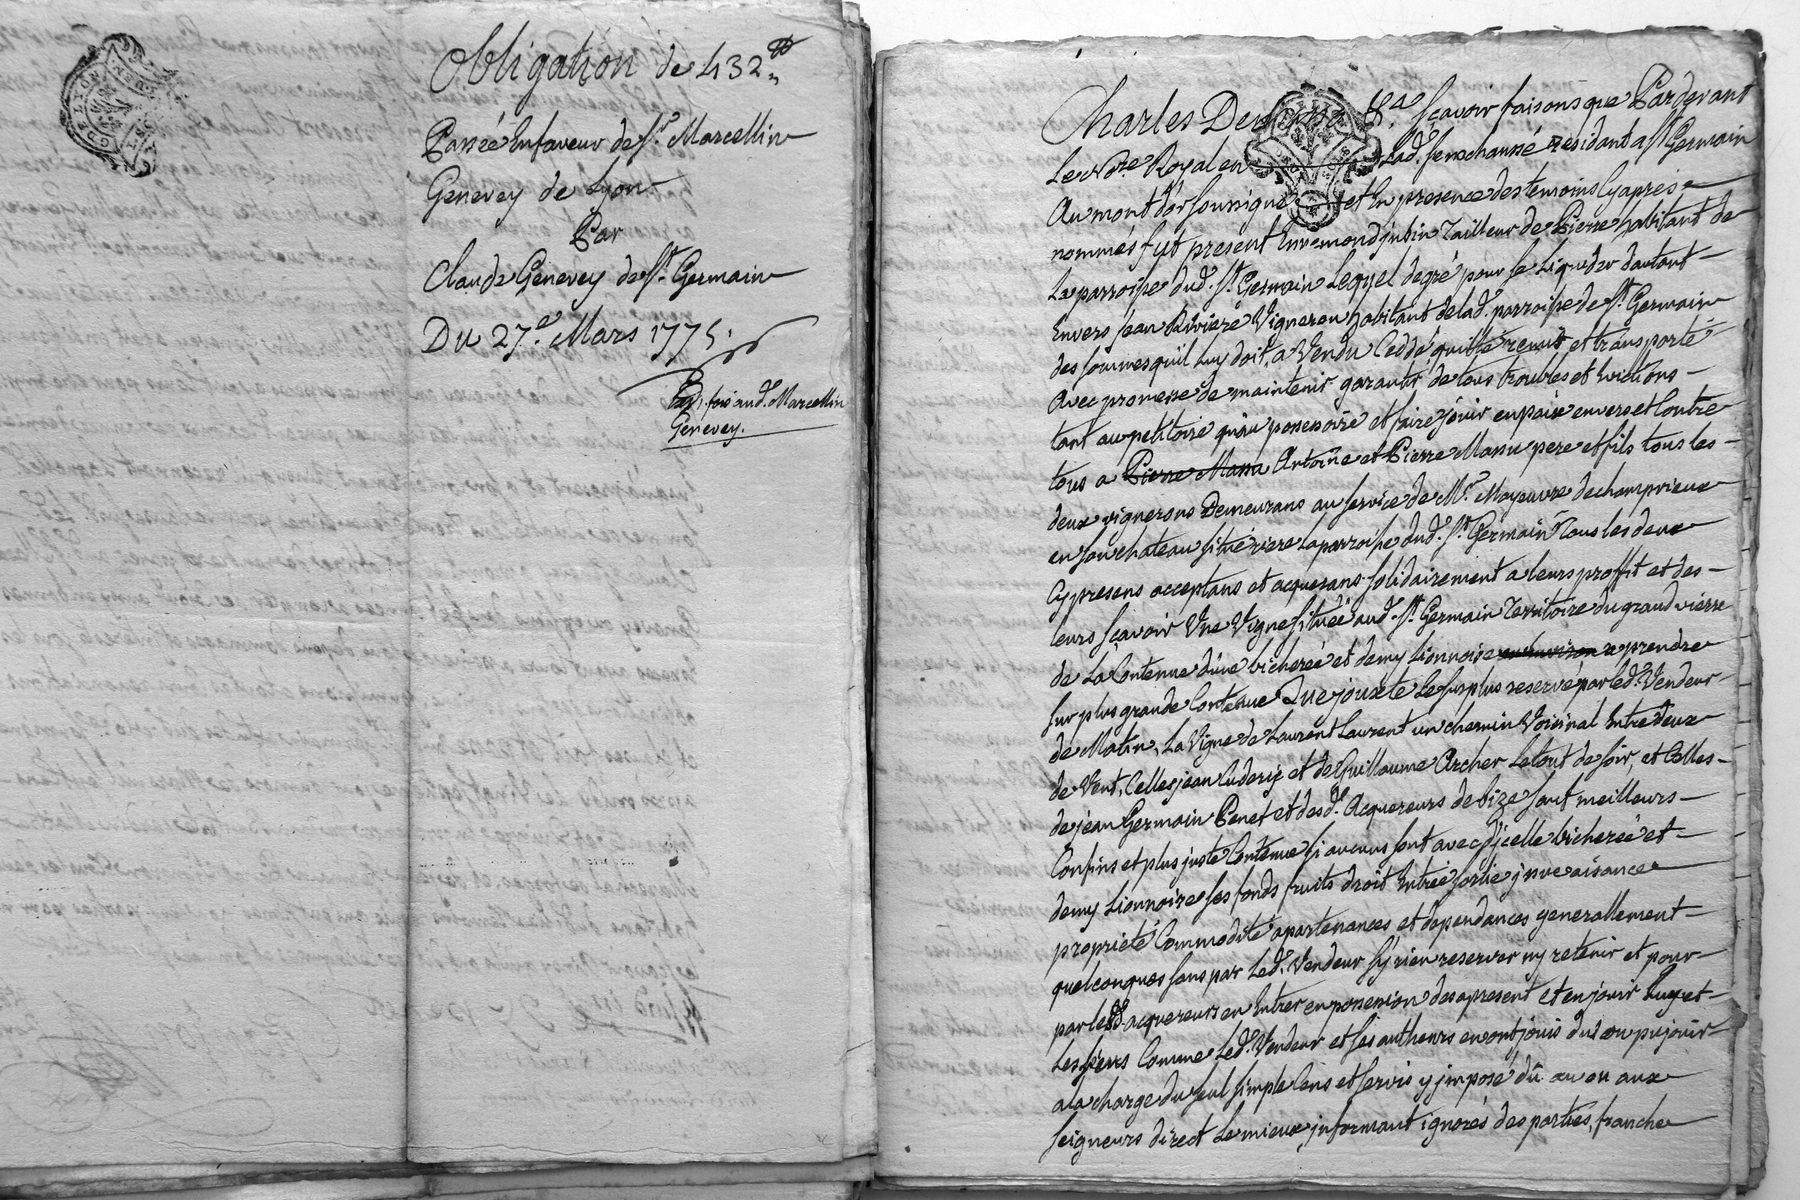 Obligation de 432 ₶
Passée Enfaveur de Sr. Marcellin
Genevey de Lyon
Par
Claude Genevey de St. Germain
Du 27e. Mars 1775.
fois aud. Marcellin
Genevey.
Charles De Sçavoir faisons que Pardevant
Le Nre Royal en Lad. Senechaussé residant a St Germain
Au mont d'or soussigné et En presence des temoins Cyaprés
nommés fut present Ennemond jubin Tailleur de Pierre habitant de
La parroisse dud. St. Germain Lequel de gré pour se Liquider dautant
Envers jean Riviere Vigneron habitant de lad. parroisse de St. Germain
des sommes qu'il Luy doit, a Vendu Ceddé quitté remis et transporté
Avec promesse de maintenir garantir de tous troubles et Evictions
tant au petitoire qu'au possessoire et faire jouir en paix envers et Contre
tous a Pierre Massu Antoine et Pierre Massu pere et fils tous les
deux vignerons Demeurans au service de Mr. Mayeuvre de champvieux
en son chateau situé riere La parroisse dud. St. Germain Tous les deux
Cy presens acceptans et acquerans solidairement a leurs proffit et des
leurs sçavoir Une Vigne située aud. St. Germain Territoire du grand vierre
de La Contenue d'une bicherée et demy Lionnoise a prendre
sur plus grande Contenue Que jouxte Le surplus reservé par led. Vendeur
de Matin, La Vigne de Laurent Laurent un chemin Voisinal Entredeux
de Vent, Celles jean et de Guillaume Archer Le tout de soir, et Celles
de jean Germain Penet et desd. Acquereurs de bize sauf meilleurs
Confins et plus juste Contenue si aucuns sont avec jcelle bicherée et
demy Lionnoise ses fonds fruits droit Entrée sortie jssue aisance
propriété Commodité apartenances et dependances generallement
quelconques sans par Led. Vendeur s'y rien reserver ny retenir et pour
par lesd. acquereurs en Entrer en possession des apresent et en jouir Eux et
Les siens Comme Led. Vendeur et ses autheurs en ont jouis dut ou pu jouir
a la charge du seul simple Cens et servis y jmposé dû au ou aux
seigneurs direct Le mieux jnformant ignorés des parties, franche